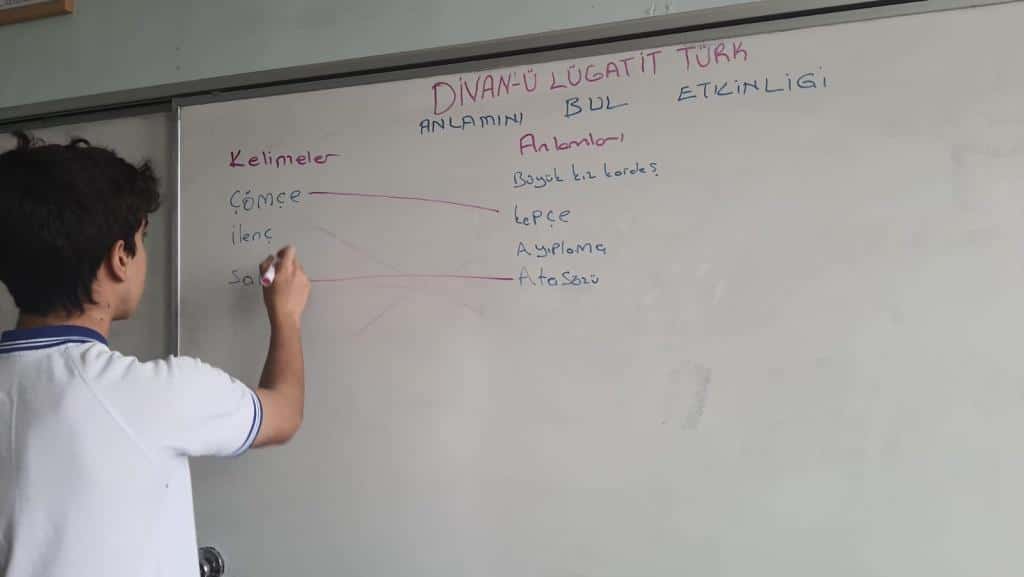 DİVAN-Ü LÜGATİT TÜRK
ANLAMINI BUL ETKİNLİĞİ
Kelimeler
Anlamları
Büyük kız kardeş
Çömçe
kepçe
İlenç
Ayıplama
Atasözü